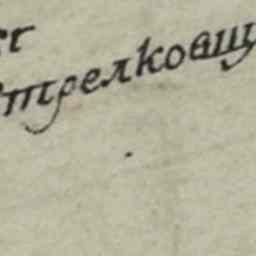 трелковщ